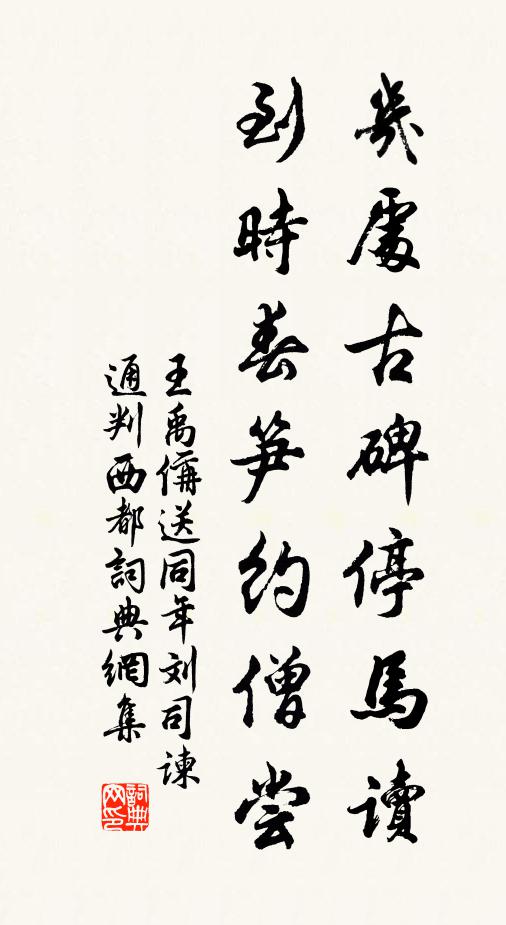 幾處古碑停馬讀
到時春笋約僧尝
王禹偁送同年刘司諫
通判西都詞典網集
詞典网印